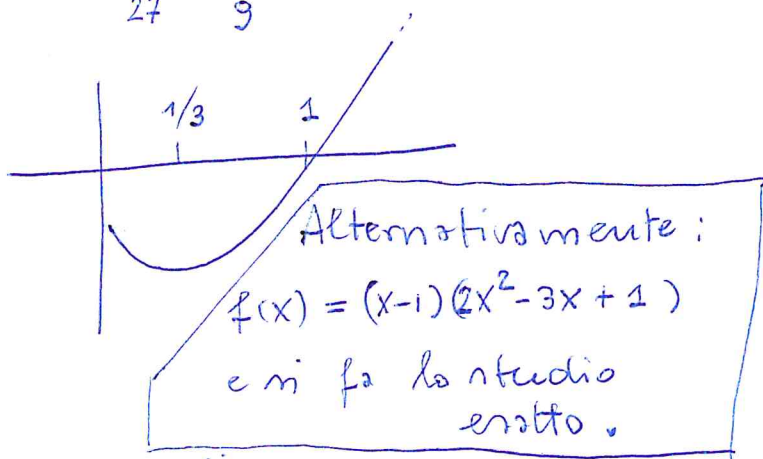 27 9
1/3 1
Alternativamente:
f(x) = (x-1)(2x²-3x+1)
e si fa lo studio
esatto.